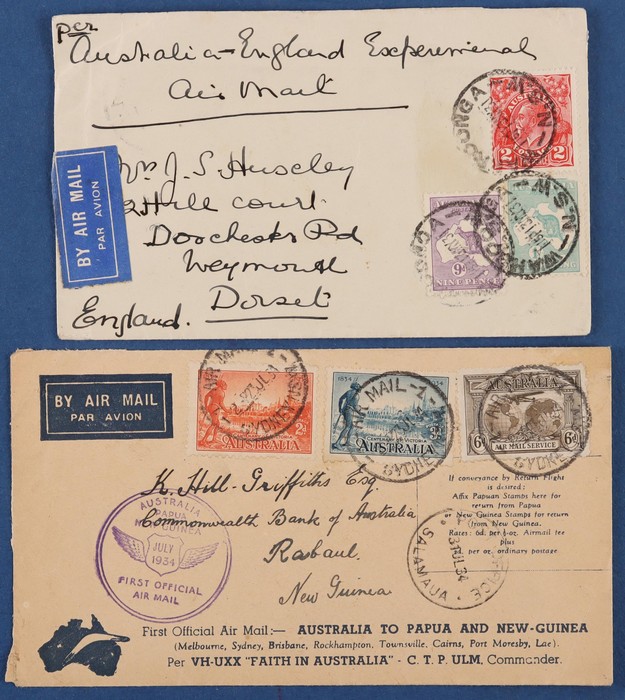 per
Australia-England Experimental
Air Mail
BY AIR MAIL
PAR AVION
Mr J. S. Huseley
2 Hill court
Dorchester Rd
Weymouth
Dorset
England.
AUST
2 2
N.S.W
9D
NINE PENCE
N.S.W
BY AIR MAIL
PAR AVION
AIR MAIL
SYDNEY
2D
CENTENARY OF VICTORIA
AUSTRALIA
1934
AIR MAIL-1-N
SYDNE
CENTENARY OF VICTORIA
AUSTRALIA
AUSTRALIA
6D 6D
AIR MAIL SERVICE
SYDNE
If conveyance by Return Flight
is desired:
Affix Papuan Stamps here for
return from Papua
or New Guinea Stamps for return
from New Guinea.
Rates: 6d. per ½-oz. Airmail fee
plus
per oz. ordinary postage.
K. Hill-Griffiths Esq.
Commonwealth Bank of Australia
Rabaul.
New Guinea
AUSTRALIA
PAPUA
NEW GUINEA
JULY
1934
FIRST OFFICIAL
AIR MAIL
POST OFFICE
31JL34
SALAMAUA
First Official Air Mail:— AUSTRALIA TO PAPUA AND NEW-GUINEA
(Melbourne, Sydney, Brisbane, Rockhampton, Townsville, Cairns, Port Moresby, Lae).
Per VH-UXX "FAITH IN AUSTRALIA" - C. T. P. ULM, Commander.